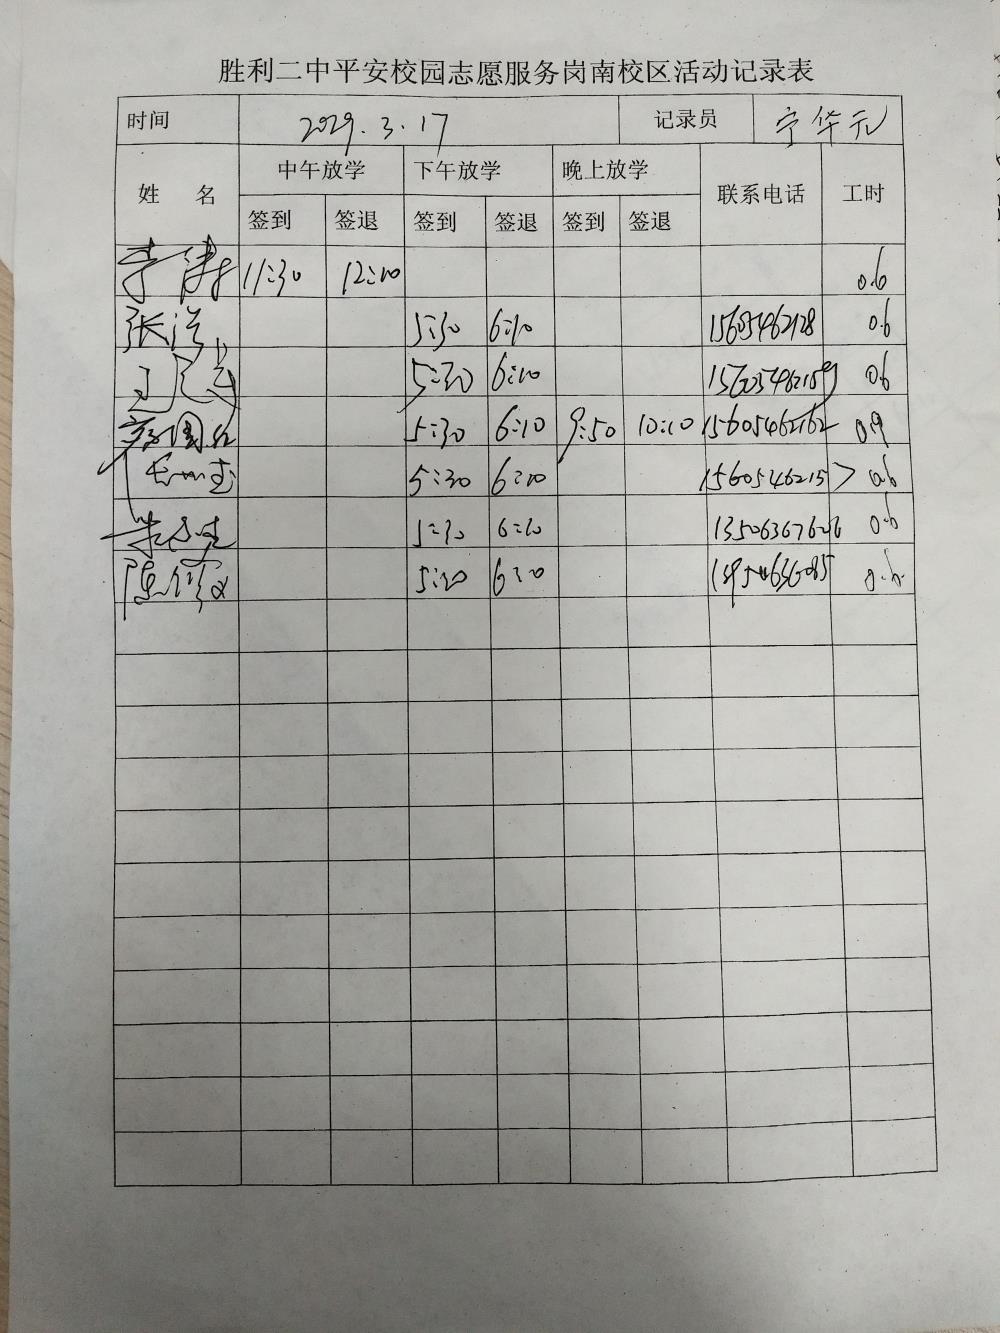 胜利二中平安校园志愿服务岗南校区活动记录表
时间 2029.3.17 记录员 宁华元
姓 名 中午放学 下午放学 晚上放学 联系电话 工时
签到 签退 签到 签退 签到 签退
李涛 11:30 12:10 0.6
张 5:30 6:10 15605462128 0.6
5:30 6:10 0.6
国红 5:30 6:10 9:50 10:10 15605462162 0.9
5:30 6:10 15605462157 0.6
朱 5:30 6:10 0.6
陈 5:30 6:10 0.6